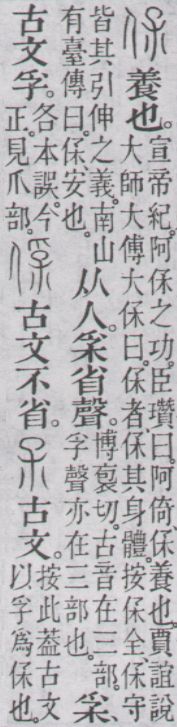 養也。宣帝紀。阿保之功。臣瓚曰。阿倚。保養也。賈誼說大師大傅大保曰。保者、保其身體。按保全保守
皆其引伸之義。南山有臺傳曰。保、安也。从人。𤓽省聲。博裦切。古音在三部。孚聲亦在三部也。𤓽
古文孚。各本誤。今正。見爪部。古文不省。古文。按此葢古文以孚爲保也。